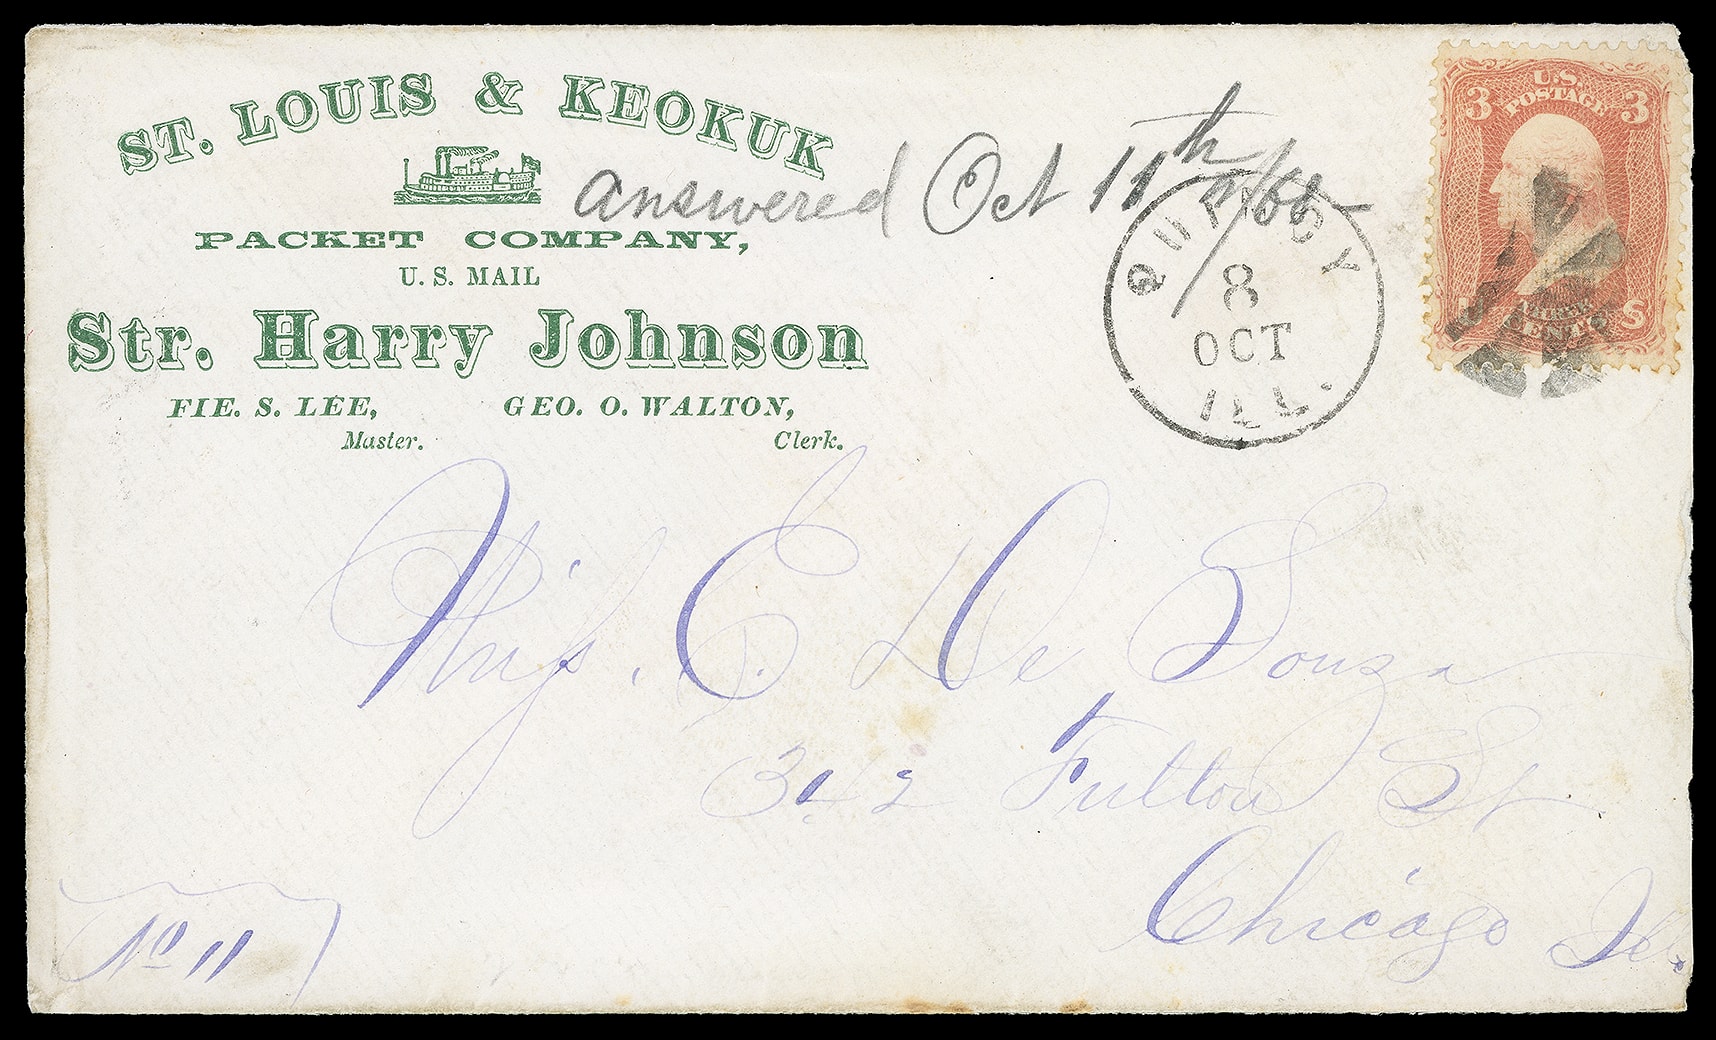 ST. LOUIS & KEOKUK
PACKET COMPANY,
U. S. MAIL
Str. Harry Johnson
FIE. S. LEE, GEO. O. WALTON,
Master. Clerk.
answered Oct 11th /66
QUINCY
8
OCT
ILL.
U.S.
POSTAGE
3 3
THREE
CENTS
U S
Miss. C. De Souza
342 Fulton St.
Chicago Ill.
No 11